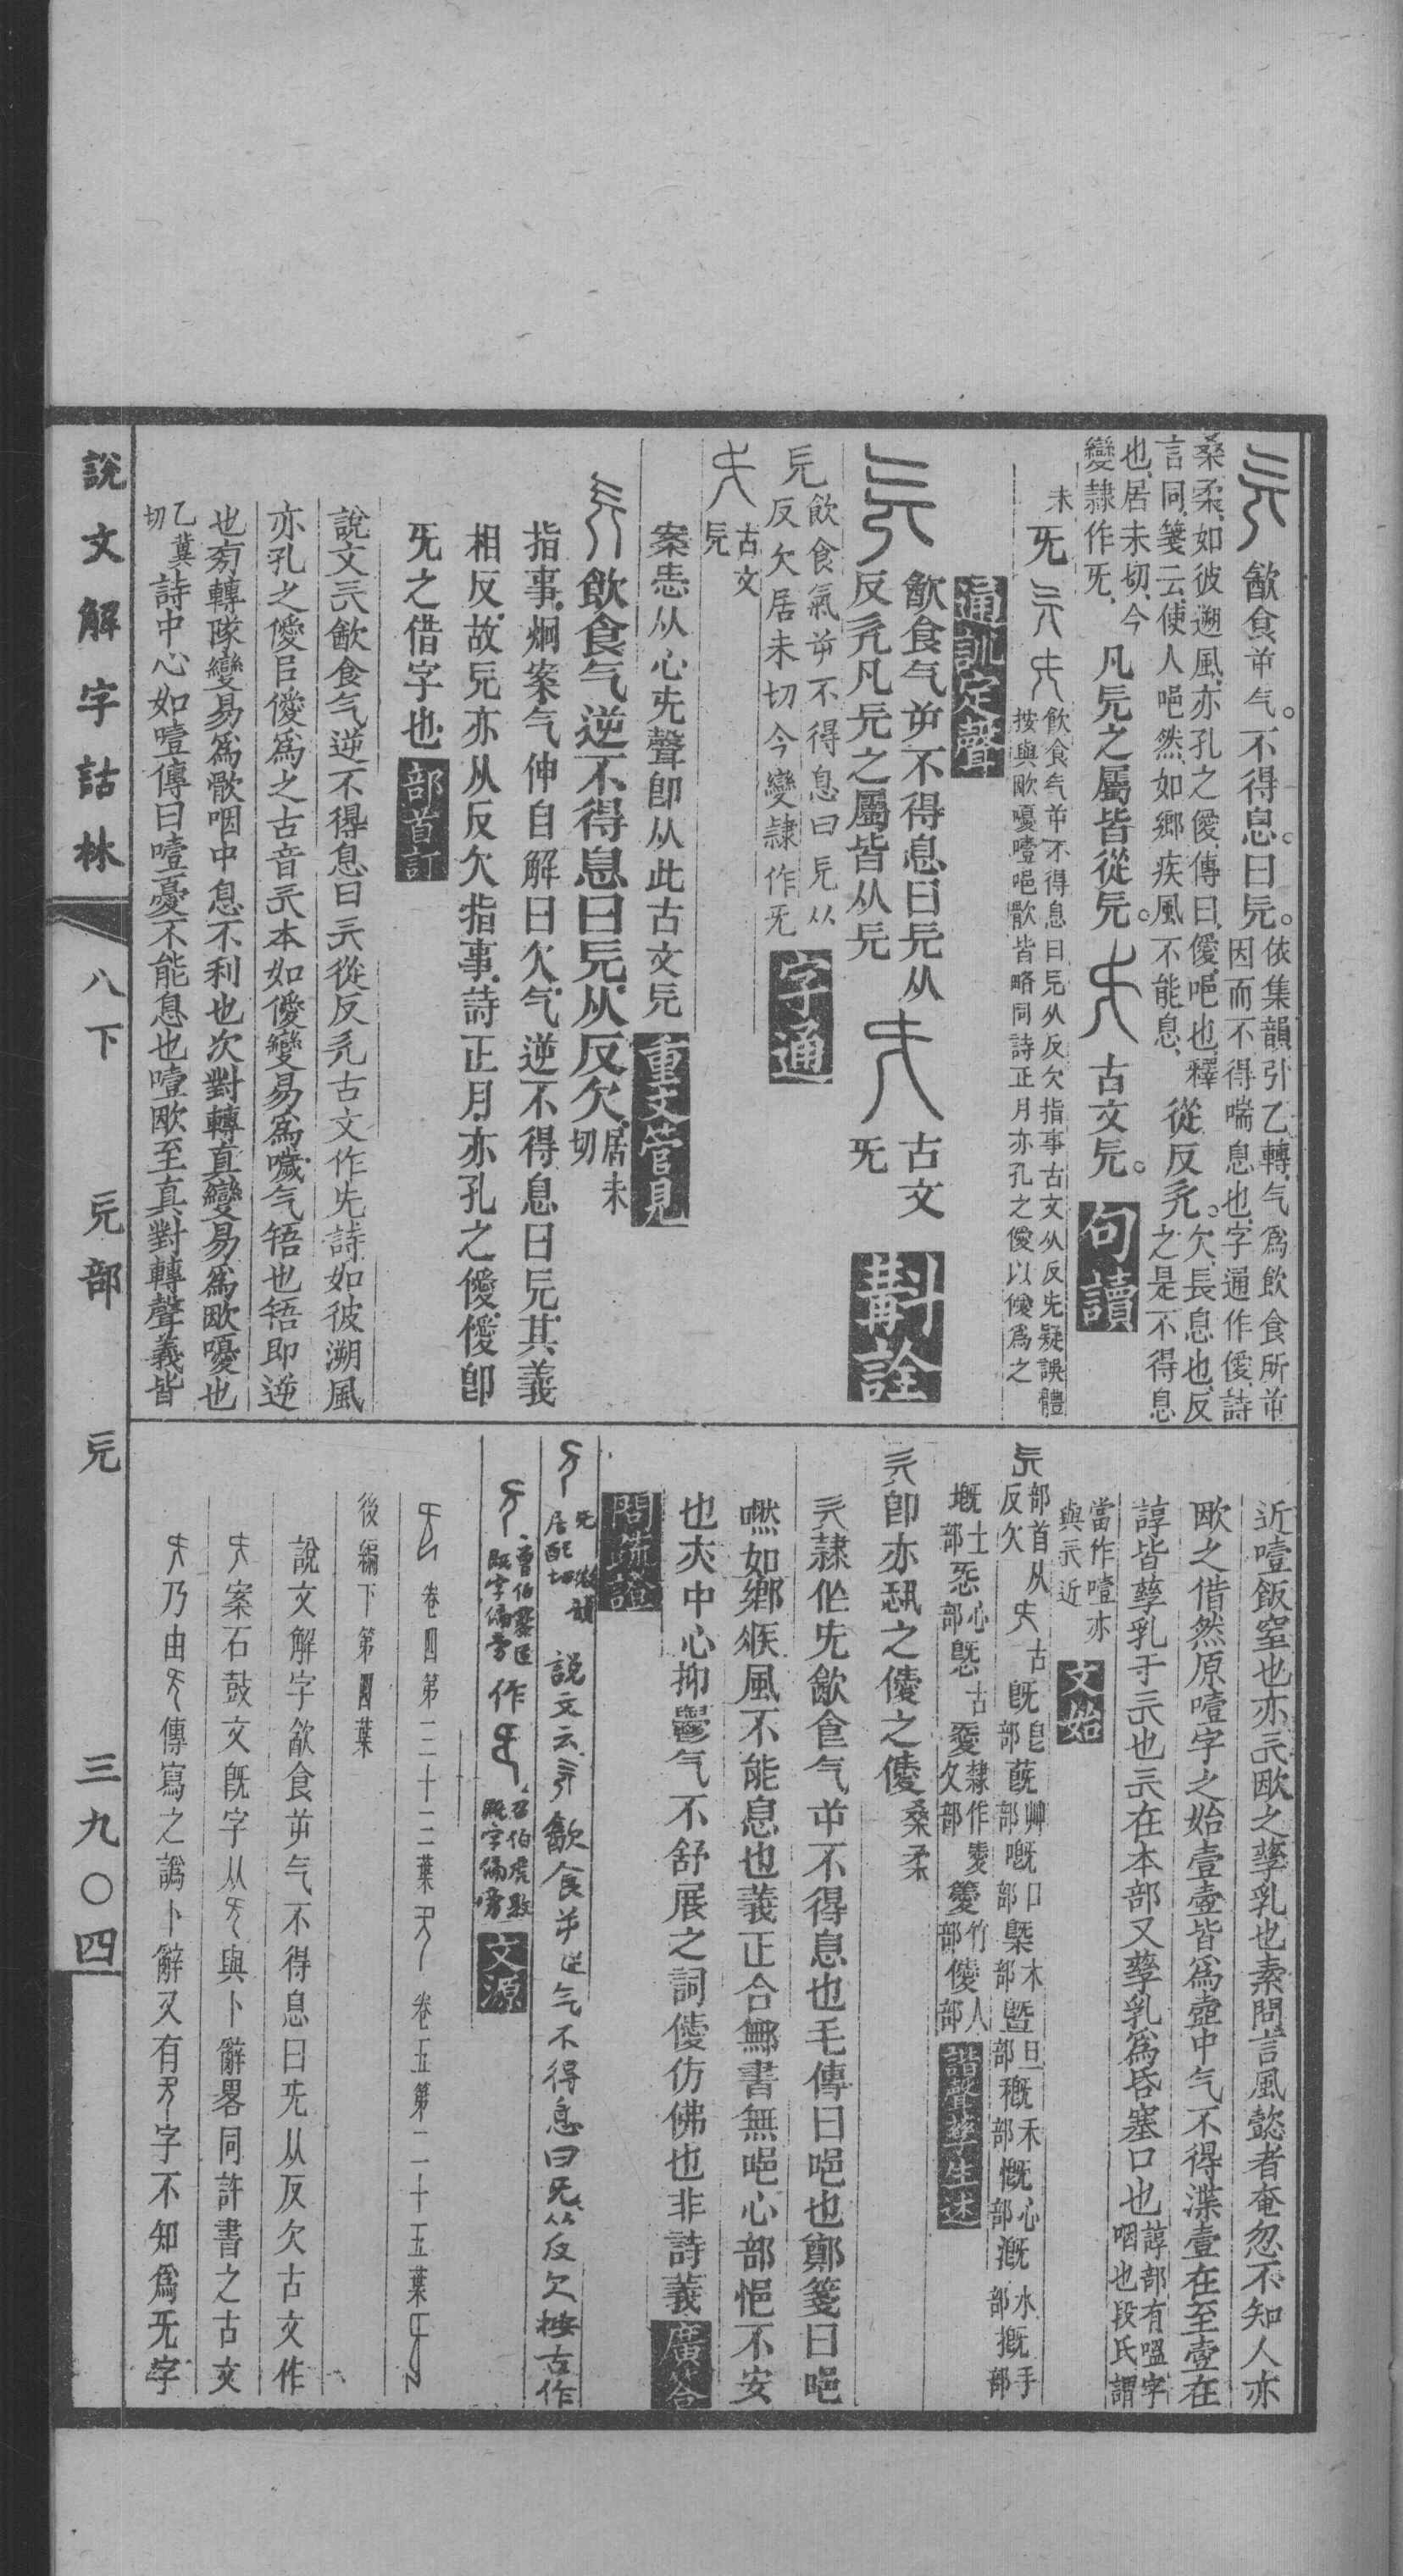 歙食屰气。不得息。曰旡。
依集韻引乙轉、气爲飲食所屰
因而不得喘息也、字通作僾、詩
桑柔、如彼遡風、亦孔之僾、傳曰、僾、唈也、釋
言同、箋云、使人唈然、如鄉疾風、不能息、
從反旡。
欠、長息也、反
之是不得息
也、居未切、今
變隷作旡、
凡旡之屬皆從旡。
古文旡。
句讀
未
旡
飲食气屰不得息曰旡从反欠指事古文从反旡疑誤體
按與歐嚘噎唈歖皆略同詩正月亦孔之僾以僾爲之
通訓定聲
歙食气屰不得息曰旡从
反旡凡旡之屬皆从旡
古文
旡
斠詮
旡
飲食氣屰不得息曰旡从
反欠居未切今變隷作旡
字通
古文
旡
案㤅从心旡聲卽从此古文旡
重文管見
飲食气逆不得息曰旡、从反欠、
居未
切
指事、炯案、气伸自解曰欠、气逆不得息曰旡、其義
相反、故旡亦从反欠指事、詩正月、亦孔之僾、僾卽
旡之借字也
部首訂
說文旡歙食气逆不得息曰旡從反旡古文作旡詩如彼溯風
亦孔之僾㠯僾爲之古音旡本如僾變易爲噦气啎也啎即逆
也旁轉隊變易爲歖咽中息不利也次對轉真變易爲歐嚘也
乙冀
切
詩中心如噎傳曰噎憂不能息也噎歐至真對轉聲義皆
近噎飯窒也亦旡歐之孳乳也素問言風懿者奄忽不知人亦
歐之借然原噎字之始壹壹皆爲壺中气不得渫壹在至壹在
諄皆孳乳于旡也旡在本部又孳乳爲昏塞口也
諄部有嗢字
咽也段氏謂
當作噎亦
與旡近
文始
旡
部首从
反欠
古
旣
皀部
蔇
艸部
嘅
口部
槩
木部
曁
旦部
穊
禾部
慨
心部
漑
水部
摡
手部
墍
土部
㤅
心部
㤥
古
愛
隸作愛
夊部
薆
竹部
僾
人部
諧聲孳生述
旡卽亦㤅之僾之僾
桑柔
旡隷作旡歙食气屰不得息也毛傳曰唈也鄭箋曰唈
㗟如鄉疾風不能息也義正合鄦書無唈心部悒不安
也夫中心抑鬱气不舒展之詞僾仿佛也非詩義
廣答
問疏證
旡
微韻
居配切
說文云旡歙食屰气不得息曰旡从反欠按古作
曾伯簠
既字偏旁
作
召伯虎敦
既字偏旁
文源
卷四第三十三葉
卷五第二十五葉
後編下第四葉
說文解字歙食屰气不得息曰旡从反欠古文作
案石鼓文旣字从旡與卜辭畧同許書之古文
乃由傳寫之譌卜辭又有字不知爲旡字
說文解字詁林
八下
旡部
旡
三九〇四